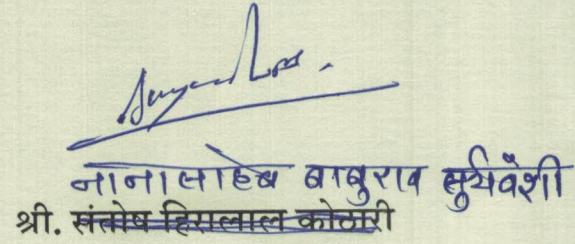 नानासाहेब बाबुराव सुर्यवंशी
श्री. संतोष हिरालाल कोठारी